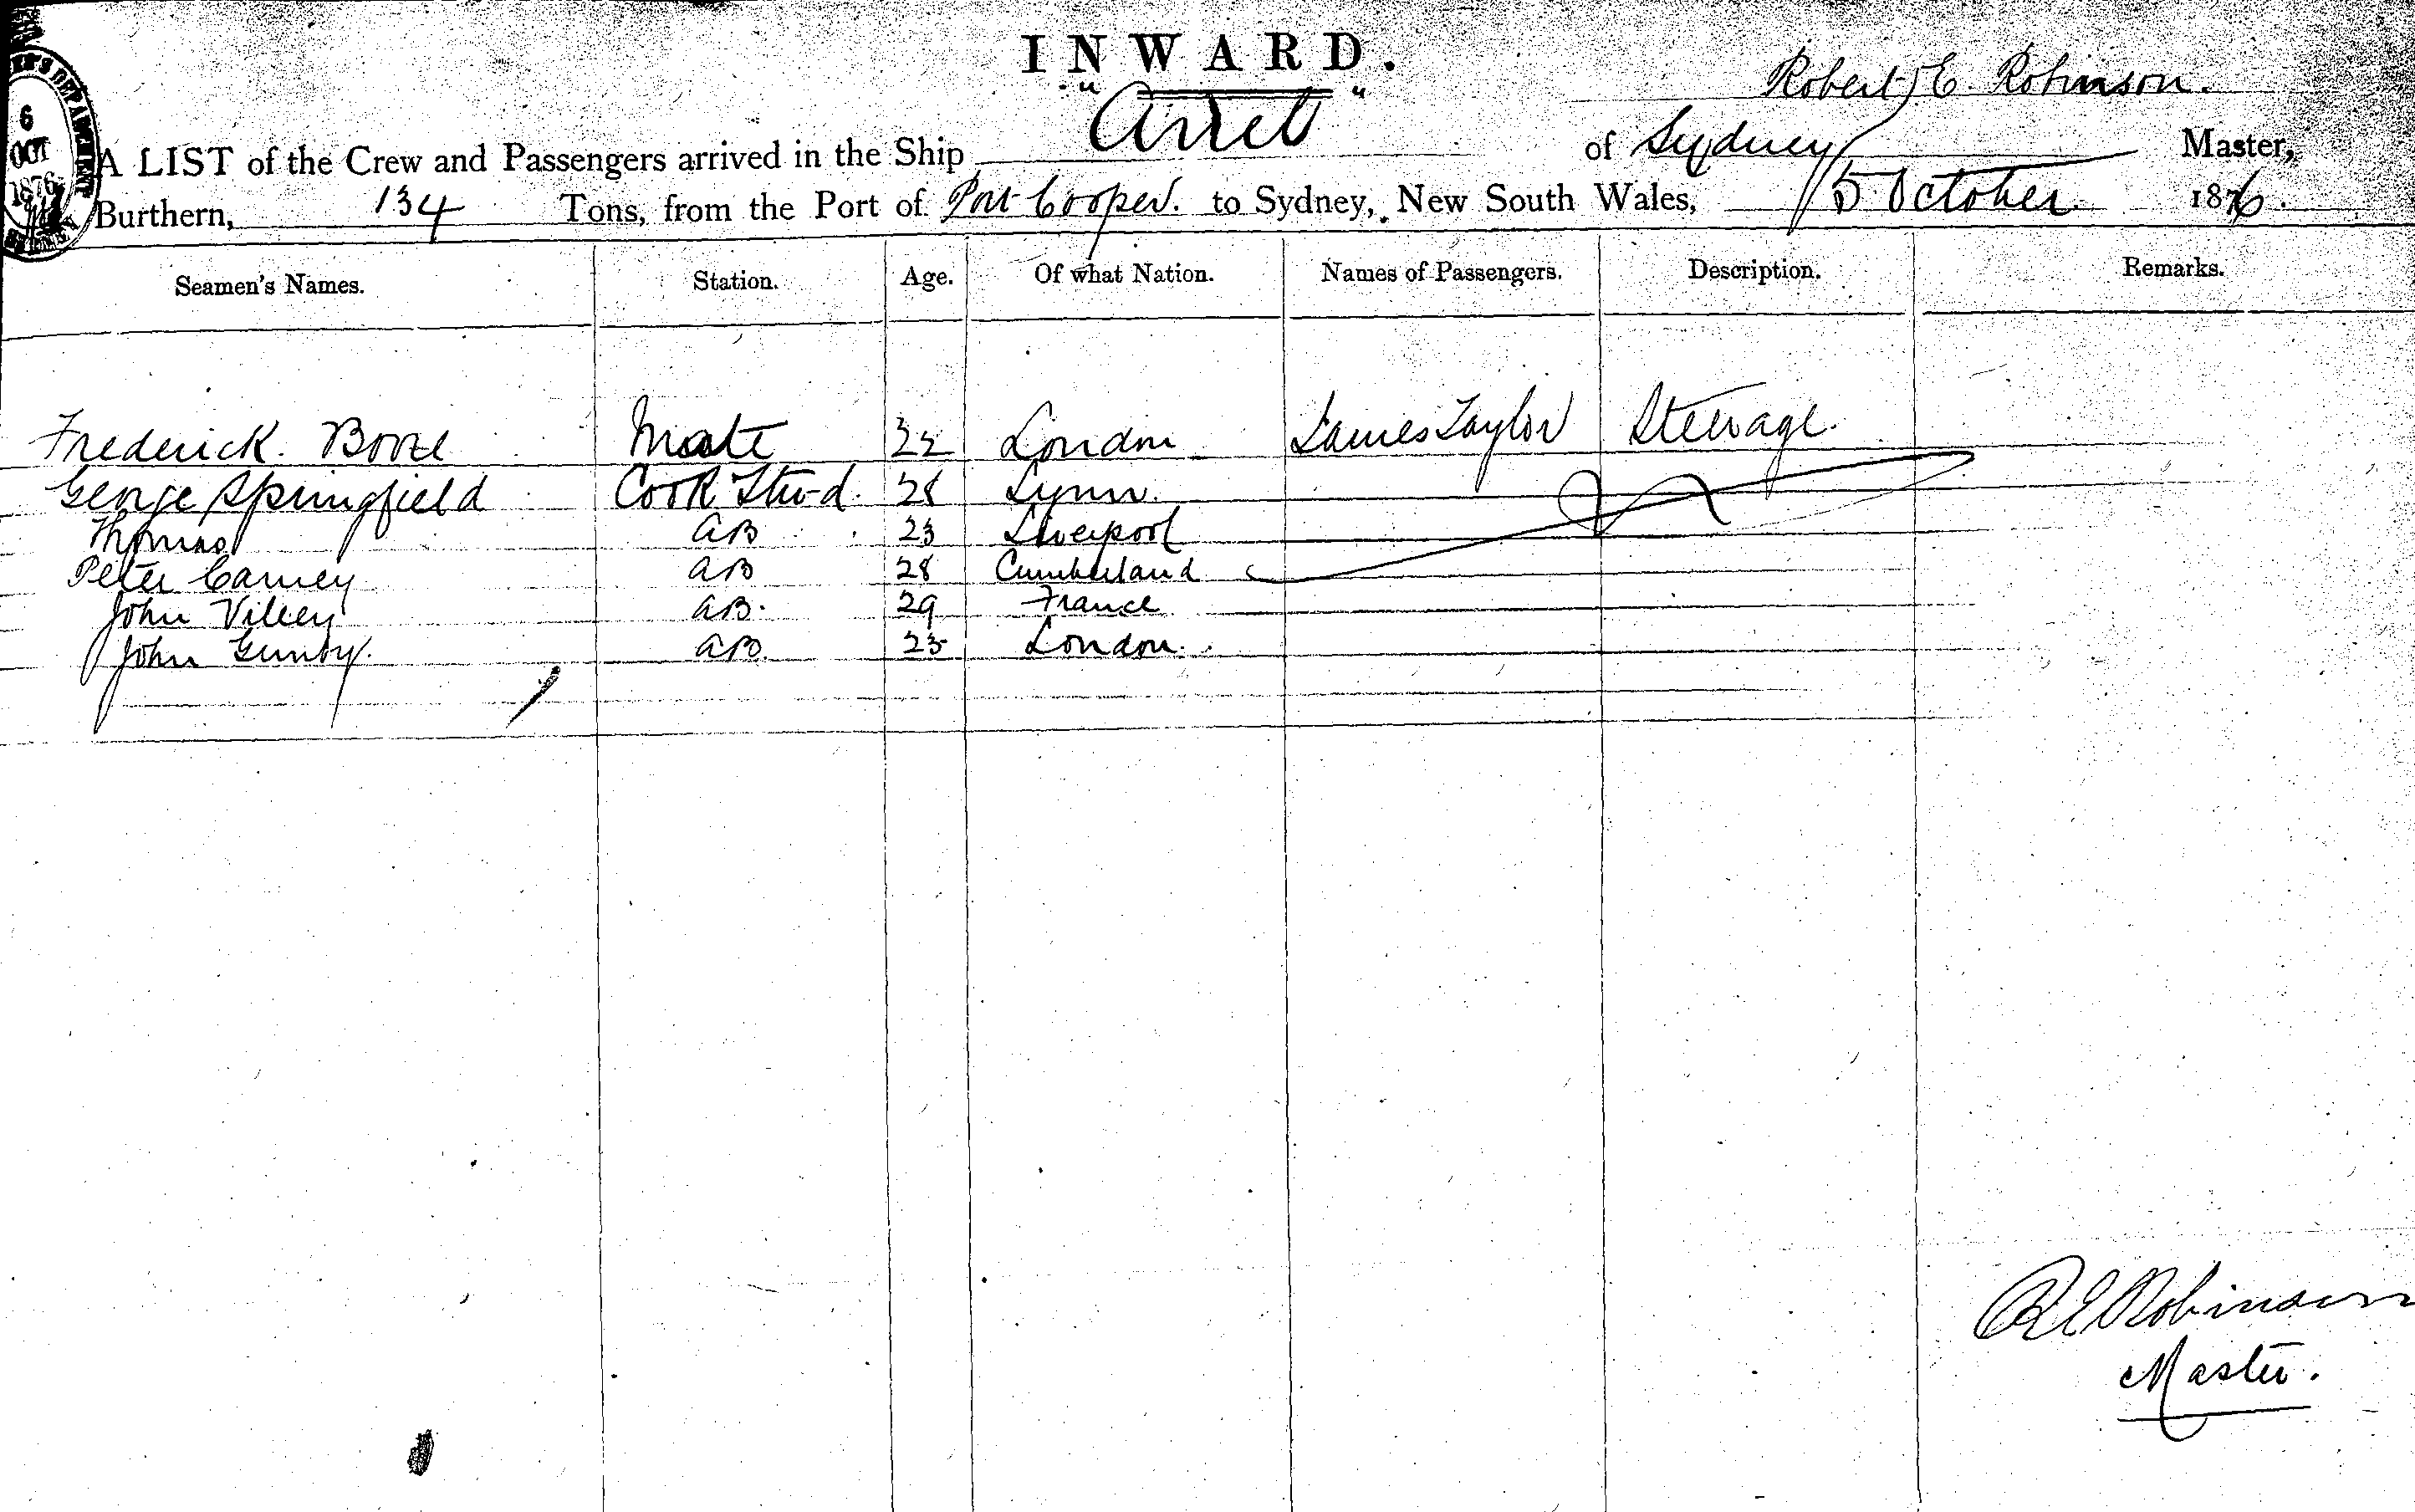 INWARD.
Robert E. Robinson.
A LIST of the Crew and Passengers arrived in the Ship " " of Sydney Master,
Burthern, 134 Tons, from the Port of Port Cooper. to Sydney, New South Wales, 5 October. 1876.
6
OCT
1876
Seamen's Names. Station. Age. Of what Nation. Names of Passengers. Description. Remarks.
Frederick. Mate 22 London James Taylor Steerage.
George Springfield Cook Stwd. 28 Lynn.
Thomas AB 23 Liverpool
Peter Carney AB 28 Cumberland
John AB. 29 France
John Gunby. AB. 25 London.
R E Robinson
Master.